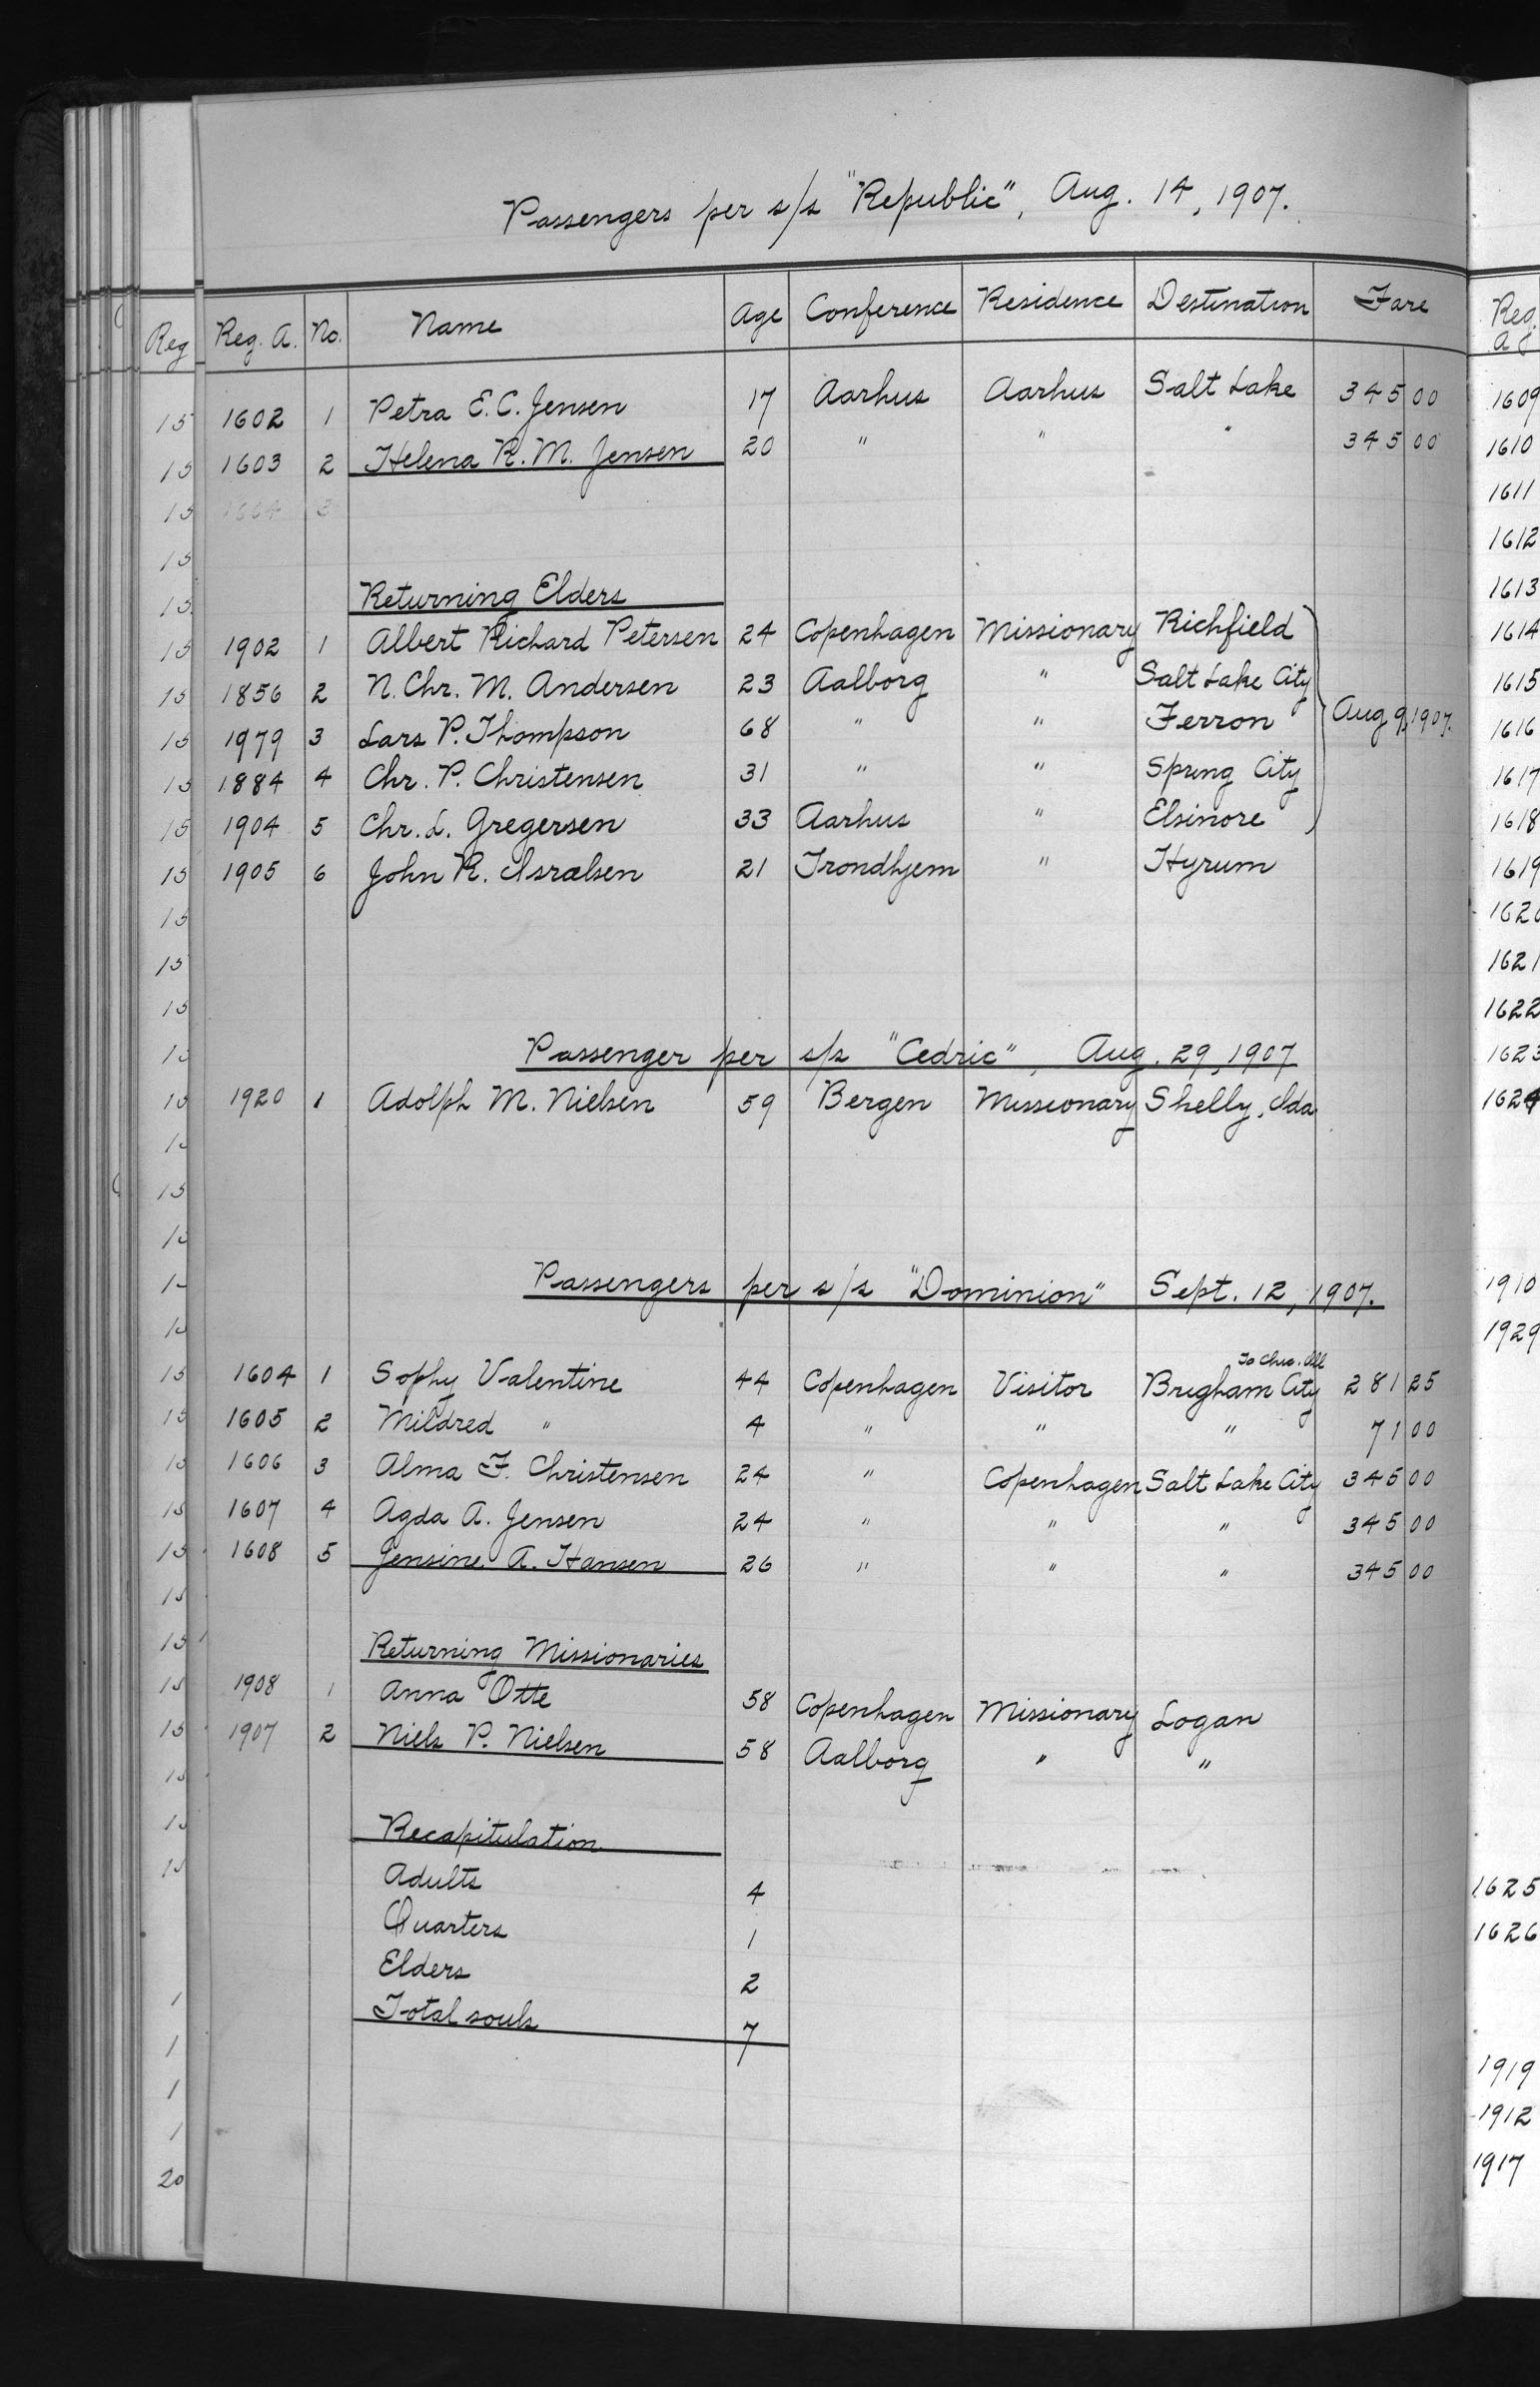 Passengers per s/s "Republic", Aug. 14, 1907.
Reg. A. No. Name Age Conference Residence Destination Fare
1602 1 Petra E. C. Jensen 17 Aarhus Aarhus Salt Lake 345 00
1603 2 Helena R. M. Jensen 20 " " " 345 00
1604 3
Returning Elders
1902 1 Albert Richard Petersen 24 Copenhagen Missionary Richfield
1856 2 N. Chr. M. Andersen 23 Aalborg " Salt Lake City
1979 3 Lars P. Thompson 68 " " Ferron Aug 9, 1907.
1884 4 Chr. P. Christensen 31 " " Spring City
1904 5 Chr. L. Gregersen 33 Aarhus " Elsinore
1905 6 John R. Israelsen 21 Trondhjem " Hyrum
Passenger per s/s "Cedric", Aug. 29, 1907
1920 1 Adolph M. Nielsen 59 Bergen Missionary Shelly, Ida
Passengers per s/s "Dominion" Sept. 12, 1907.
1604 1 Sophy Valentine 44 Copenhagen Visitor Brigham City 281 25
1605 2 Mildred " 4 " " " 71 00
1606 3 Alma F. Christensen 24 " Copenhagen Salt Lake City 345 00
1607 4 Agda A. Jensen 24 " " " 345 00
1608 5 Jensine A. Hansen 26 " " " 345 00
Returning Missionaries
1908 1 Anna Otte 58 Copenhagen Missionary Logan
1907 2 Niels P. Nielsen 58 Aalborg " "
Recapitulation
Adults 4
Quarters 1
Elders 2
Total souls 7
Reg.
1609
1610
1611
1612
1613
1614
1615
1616
1617
1618
1619
1621
1622
1623
1624
1910
1929
1625
1626
1919
1912
1917